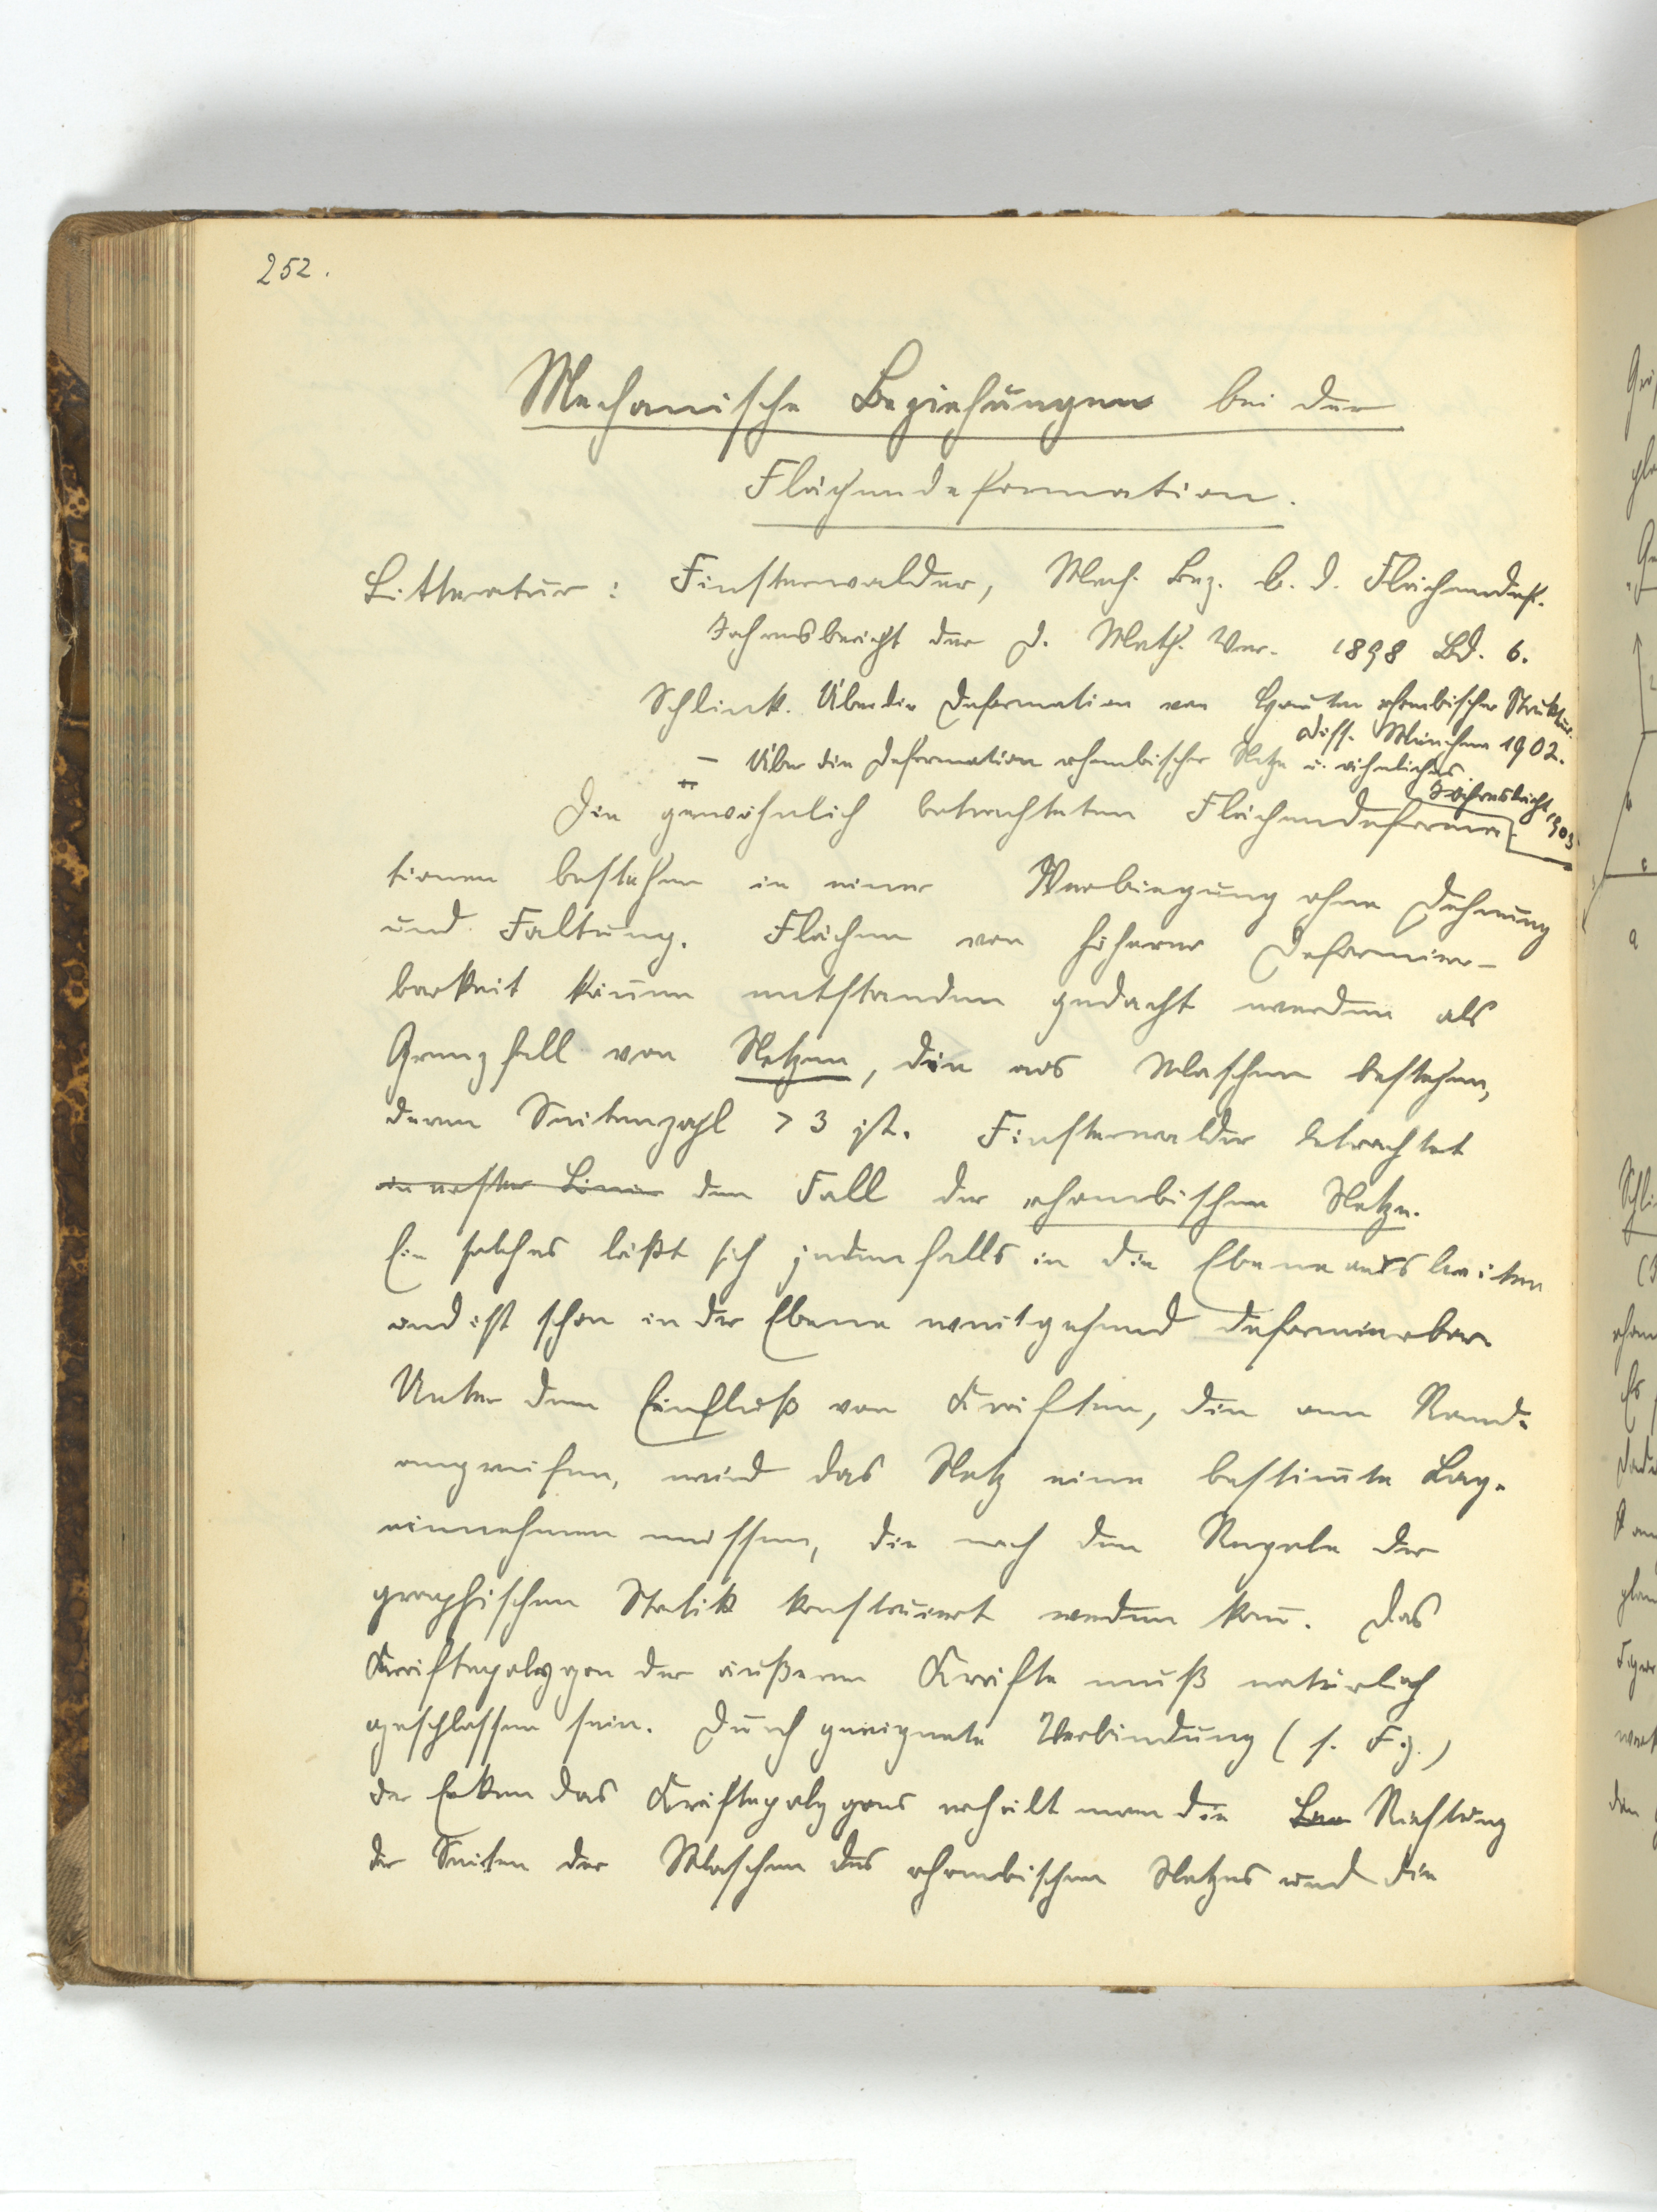 252.
Mechanische Beziehungen bei der
Flächendeformation.
Litteratur: Finsterwalder, Mech. Bez. b. d. Flächendef.
Jahresbericht der D. Math. Ver. 1898 Bd. 6.
Schlink. Über die Deformation von Häuten rhombischer Struktur.
Diss. München 1902.
— Über die Deformation rhombischer Netze u. ähnliches.
Jahresbericht 1903
Die gewöhnlich betrachteten Flächendeforma-
tionen bestehen in einer Verbiegung ohne Dehnung
und Faltung. Flächen von höherer Deformier-
barkeit kön̄en entstanden gedacht werden als
Grenzfall von Netzen, die aus Maschen bestehen,
deren Seitenzahl > 3 ist. Finsterwalder betrachtet
in erster Linie den Fall der rhombischen Netze.
Ein solches läßt sich jedenfalls in die Ebene ausbreiten
und ist schon in der Ebene weitgehend deformierbar.
Unter dem Einfluß von Kräften, die am Rande
angreifen, wird das Netz eine bestim̄te Lage
einnehmen müssen, die nach den Regeln der
graphischen Statik konstruiert werden kan̄. Das
Kräftepolygon der äußeren Kräfte muß natürlich
geschlossen sein. Durch geeignete Verbindung (s. Fig.)
der Ecken das Kräftepolygons erhält man die Richtung
der Seiten der Maschen des rhombischen Netzes und die